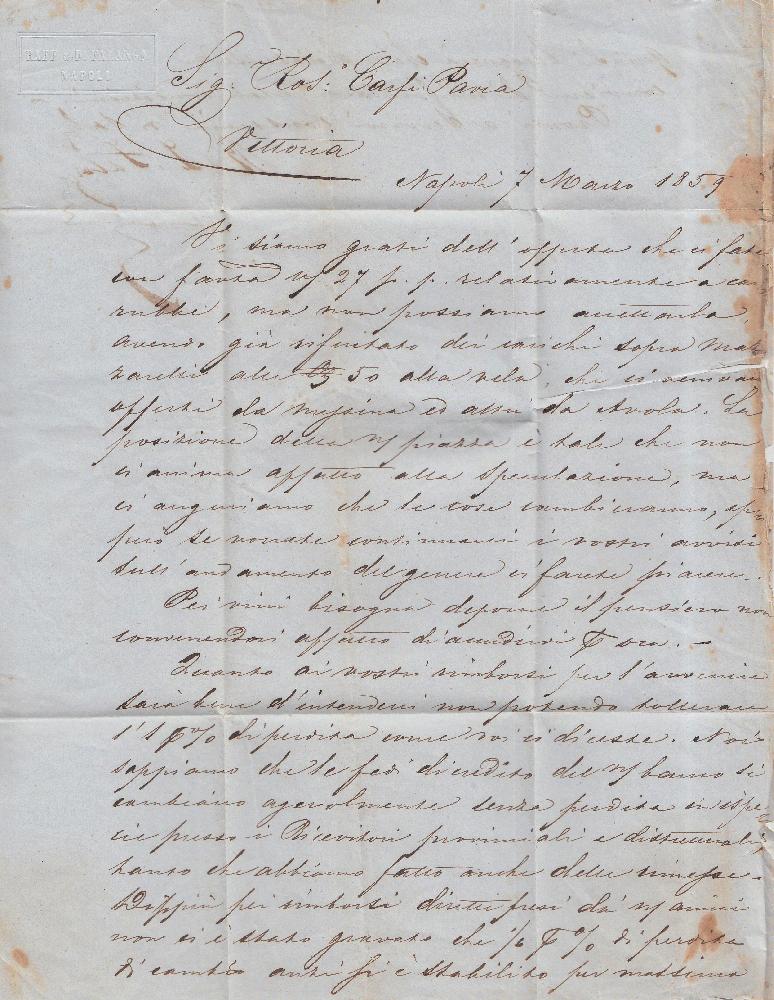 RAFF. e D. FALANGA
NAPOLI
Sig: Ros:º Carfi Pavia
Vittoria
Napoli 7 Marzo 1859
Vi siamo grati dell' offerta che ci fate
con 27 p. p. relativamente a ca-
rubbe, ma non possiamo accettarla,
avendo già rifiutato dei carichi sopra Maz-
zarelli alle 50 alla vela, che ci venivano
offerti da Messina ed altri da Avola. La
posizione della n/ piazza è tale che non
ci anima affatto alla speculazione, ma
ci auguriamo che le cose cambieranno, ep-
però se vorrete continuarci i vostri avvisi
sull' andamento del genere ci farete piacere.
Pei vini bisogna deporne il pensiero non
convenendoci affatto di accudirvi p ora. -
Quanto ai vostri rimborsi per l'avvenire
sarà bene d'intenderci non potendo tollerare
l' 1 p % di perdita come voi ci diceste. Noi
sappiamo che le fedi di credito del n/ banco si
cambiano agevolmente senza perdita in ispe-
cie presso i Ricevitori provinciali e distrettuali,
tanto che abbiamo fatto anche delle rimesse.
Dippiù pei rimborsi diretti presi da' n/ amici
non ci è stato gravato che ½ p % di perdita
di cambio anzi si è stabilito per massima